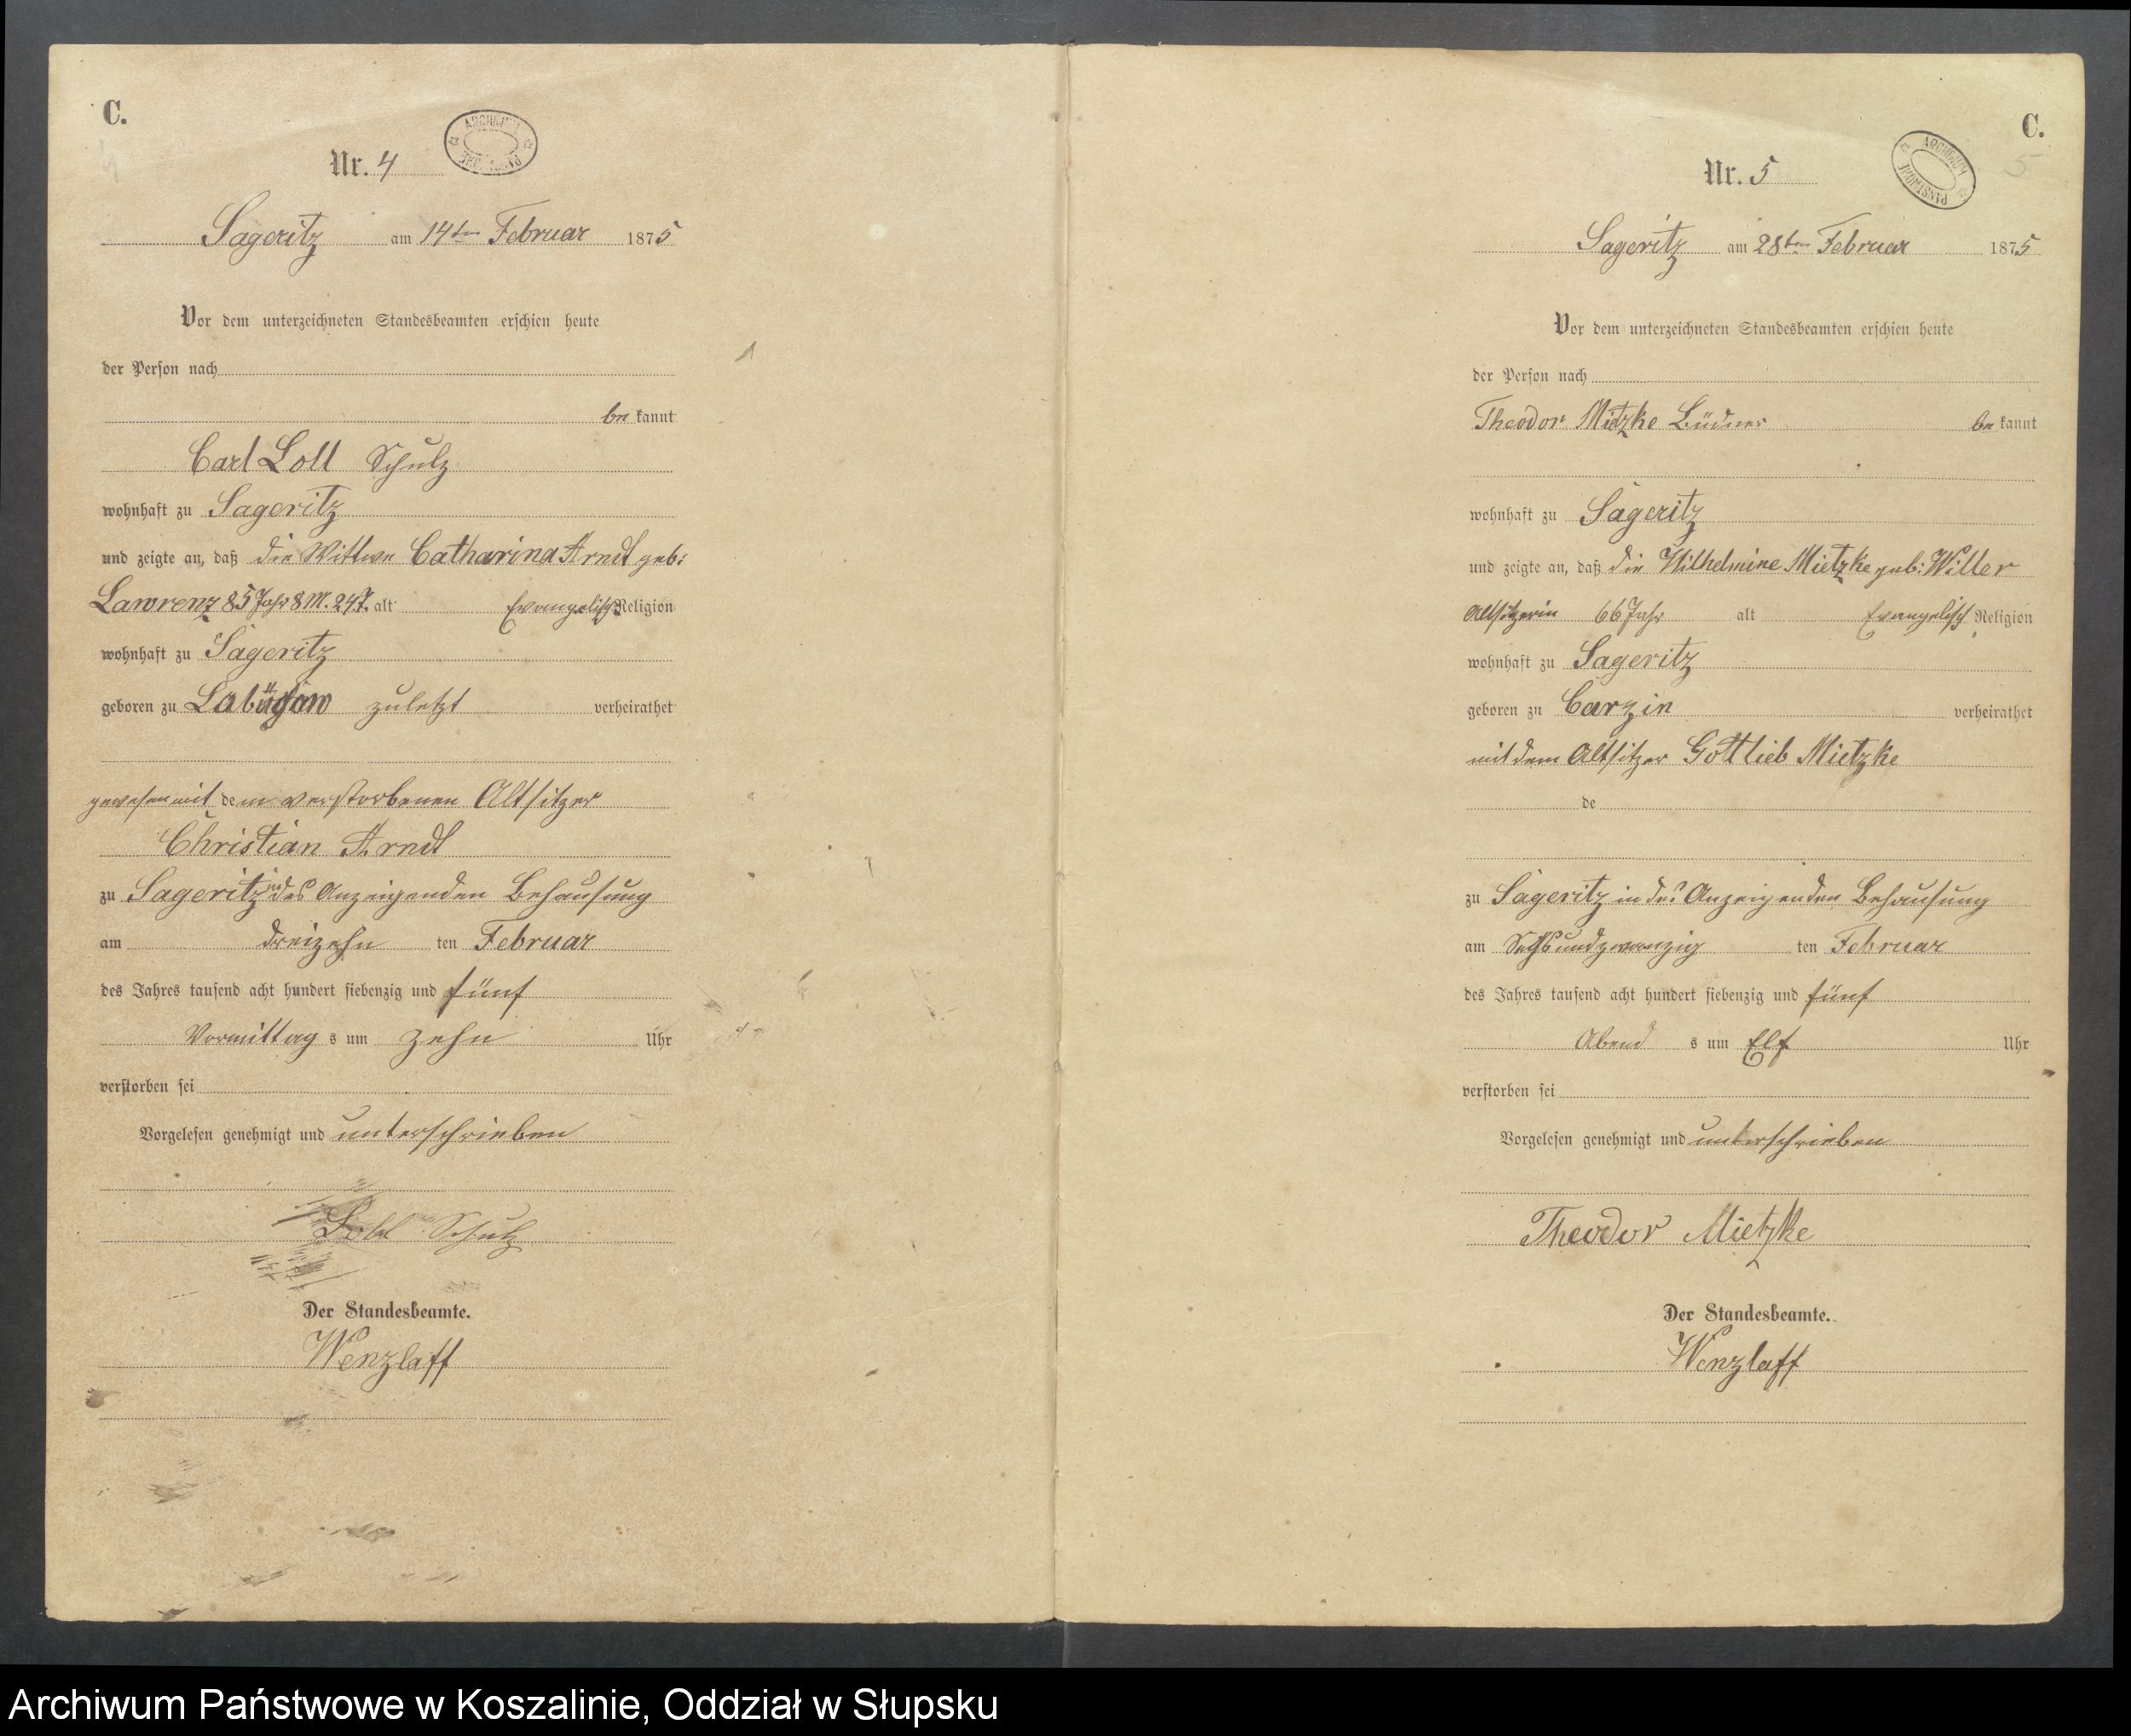 C.
Nr. 4
ARCHIWUM
Sageritz am 14ten Februar 1875
Vor dem unterzeichneten Standesbeamten erschien heute
der Person nach
be kannt
Carl Loll Schulz
wohnhaft zu Sageritz
und zeigte an, daß die Wittwe Catharina Arndt geb:
Lawrenz 85 Jahr 8 M. 24 T. alt Evangelisch Religion
wohnhaft zu Sageritz
geboren zu zuletzt verheirathet
gewesen mit dem verstorbenen Altsitzer
Christian Arndt
zu Sageritz in des Anzeigenden Behausung
am dreizehn ten Februar
des Jahres tausend acht hundert siebenzig und fünf
Vormittag s um zehn Uhr
verstorben sei
Vorgelesen genehmigt und unterschrieben
Loll Schulz
Der Standesbeamte.
Wenzlaff
C.
5
Nr. 5
ARCHIWUM PAŃSTWOWE
Sageritz am 28ten Februar 1875
Vor dem unterzeichneten Standesbeamten erschien heute
der Person nach
Theodor Mietzke Büdner be kannt
wohnhaft zu Sageritz
und zeigte an, daß die Wilhelmine Mietzke geb: Witter
Altsitzerin 66 Jahr alt Evangelisch Religion
wohnhaft zu Sageritz
geboren zu Carzin verheirathet
mit dem Altsitzer Gottlieb Mietzke
de
zu Sageritz in des Anzeigenden Behausung
am Sechsundzwanzig ten Februar
des Jahres tausend acht hundert siebenzig und fünf
Abend s um Elf Uhr
verstorben sei
Vorgelesen genehmigt und unterschrieben
Theodor Mietzke
Der Standesbeamte.
Wenzlaff
Archiwum Państwowe w Koszalinie, Oddział w Słupsku